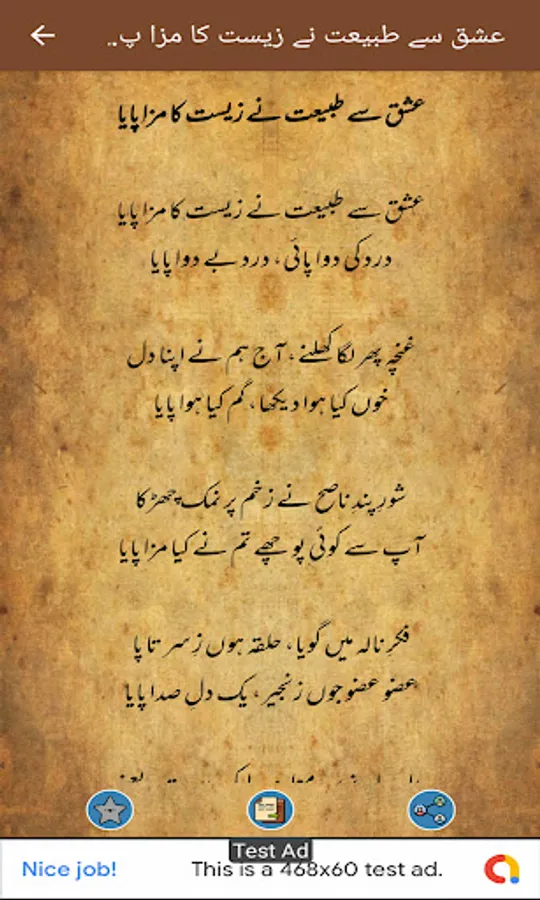 عشق سے طبیعت نے زیست کا مزا پ..
عشق سے طبیعت نے زیست کا مزا پایا
عشق سے طبیعت نے زیست کا مزا پایا
درد کی دوا پائی، درد بے دوا پایا
غنچہ پھر لگا کھلنے، آج ہم نے اپنا دل
خوں کیا ہوا دیکھا، گم کیا ہوا پایا
شورِ پندِ ناصح نے زخم پر نمک چھڑکا
آپ سے کوئی پوچھے تم نے کیا مزا پایا
فکرِ نالہ میں گویا، حلقہ ہوں زِ سر تا پا
عضو عضو جوں زنجیر، یک دلِ صدا پایا
Test Ad
Nice job!
This is a 468x60 test ad.